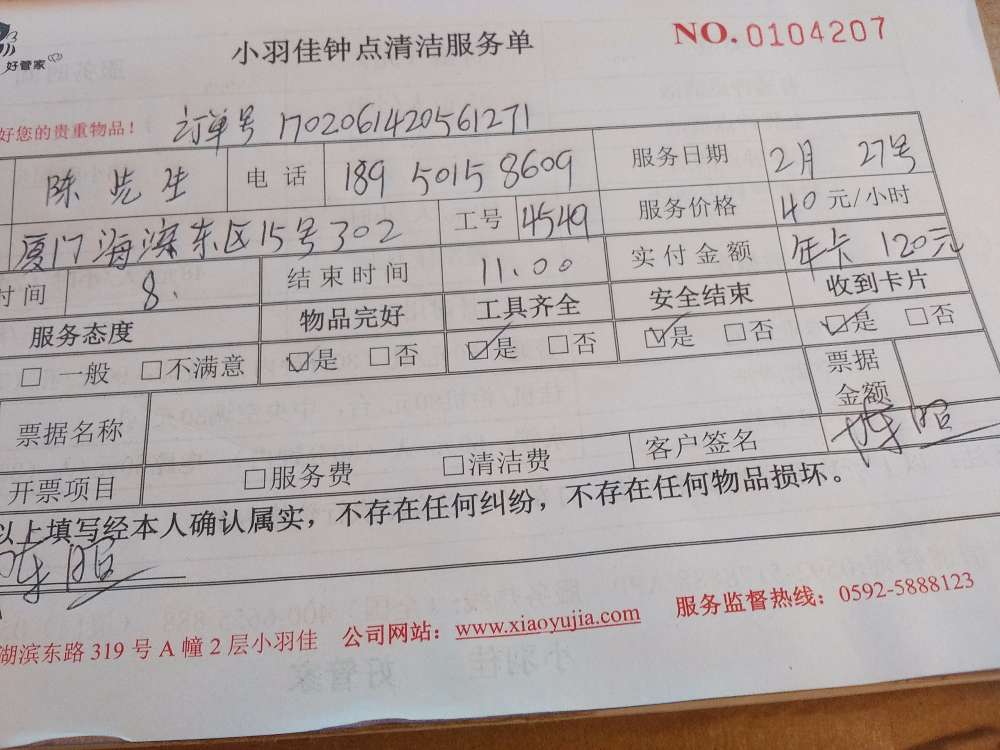 好管家
小羽佳钟点清洁服务单
NO. 0104207
好您的贵重物品！ 订单号 1702061420561271
陈先生 电话 189 5015 8609 服务日期 2月 27号
厦门海滨东区15号302 工号 4549 服务价格 40 元/小时
时间 8. 结束时间 11.00 实付金额 年卡 120元
服务态度 物品完好 工具齐全 安全结束 收到卡片
□ 一般 □不满意 ☑是 □否 ☑是 □否 ☑是 □否 ☑是 □否
票据名称 票据金额
开票项目 □服务费 □清洁费 客户签名
以上填写经本人确认属实，不存在任何纠纷，不存在任何物品损坏。
湖滨东路 319 号 A 幢 2 层小羽佳 公司网站：www.xiaoyujia.com 服务监督热线：0592-5888123